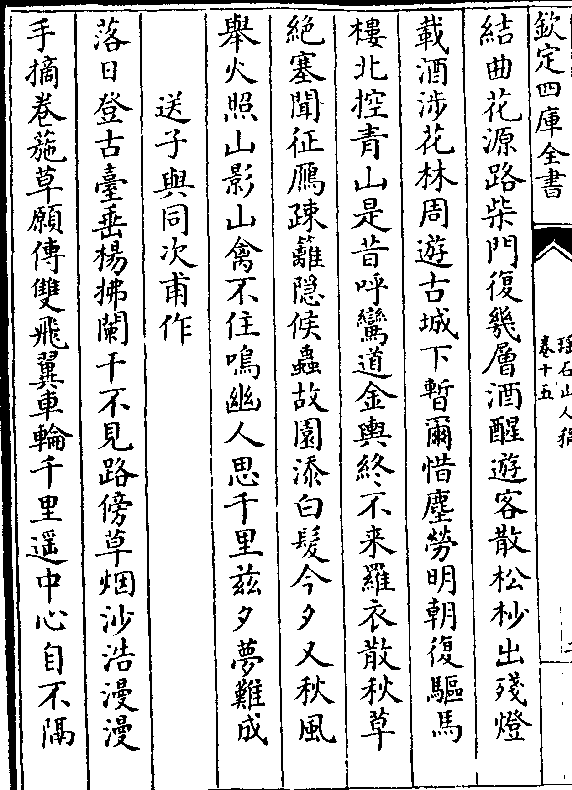 欽定四庫全書
瑶石山人稿
卷十五
結曲花源路柴門復幾層酒醒遊客散松杪出殘燈
載酒涉花林周遊古城下暫爾惜塵勞明朝復驅馬
樓北控青山是昔呼鸞道金輿終不来羅衣散秋草
絶塞聞征鴈疎籬隠候蟲故園添白髮今夕又秋風
舉火照山影山禽不住鳴幽人思千里兹夕夢難成
送子與同次甫作
落日登古臺垂楊拂闌干不見路傍草烟沙浩漫漫
手摘卷葹草願傳雙飛翼車輪千里遥中心自不隔